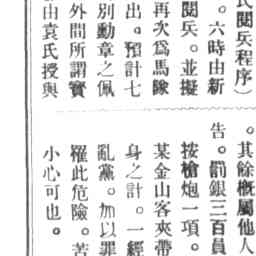 氏閱兵程序）
。六時由新
閱兵。並擬
再次爲馬隊
出。預計七
別勳章之佩
外間所謂寶
由袁氏授與
。其餘概屬他人
告。罰銀三百員
按槍炮一項。
某金山客夾帶
身之計。一經
亂黨。加以罪
罹此危險。苦
小心可也。